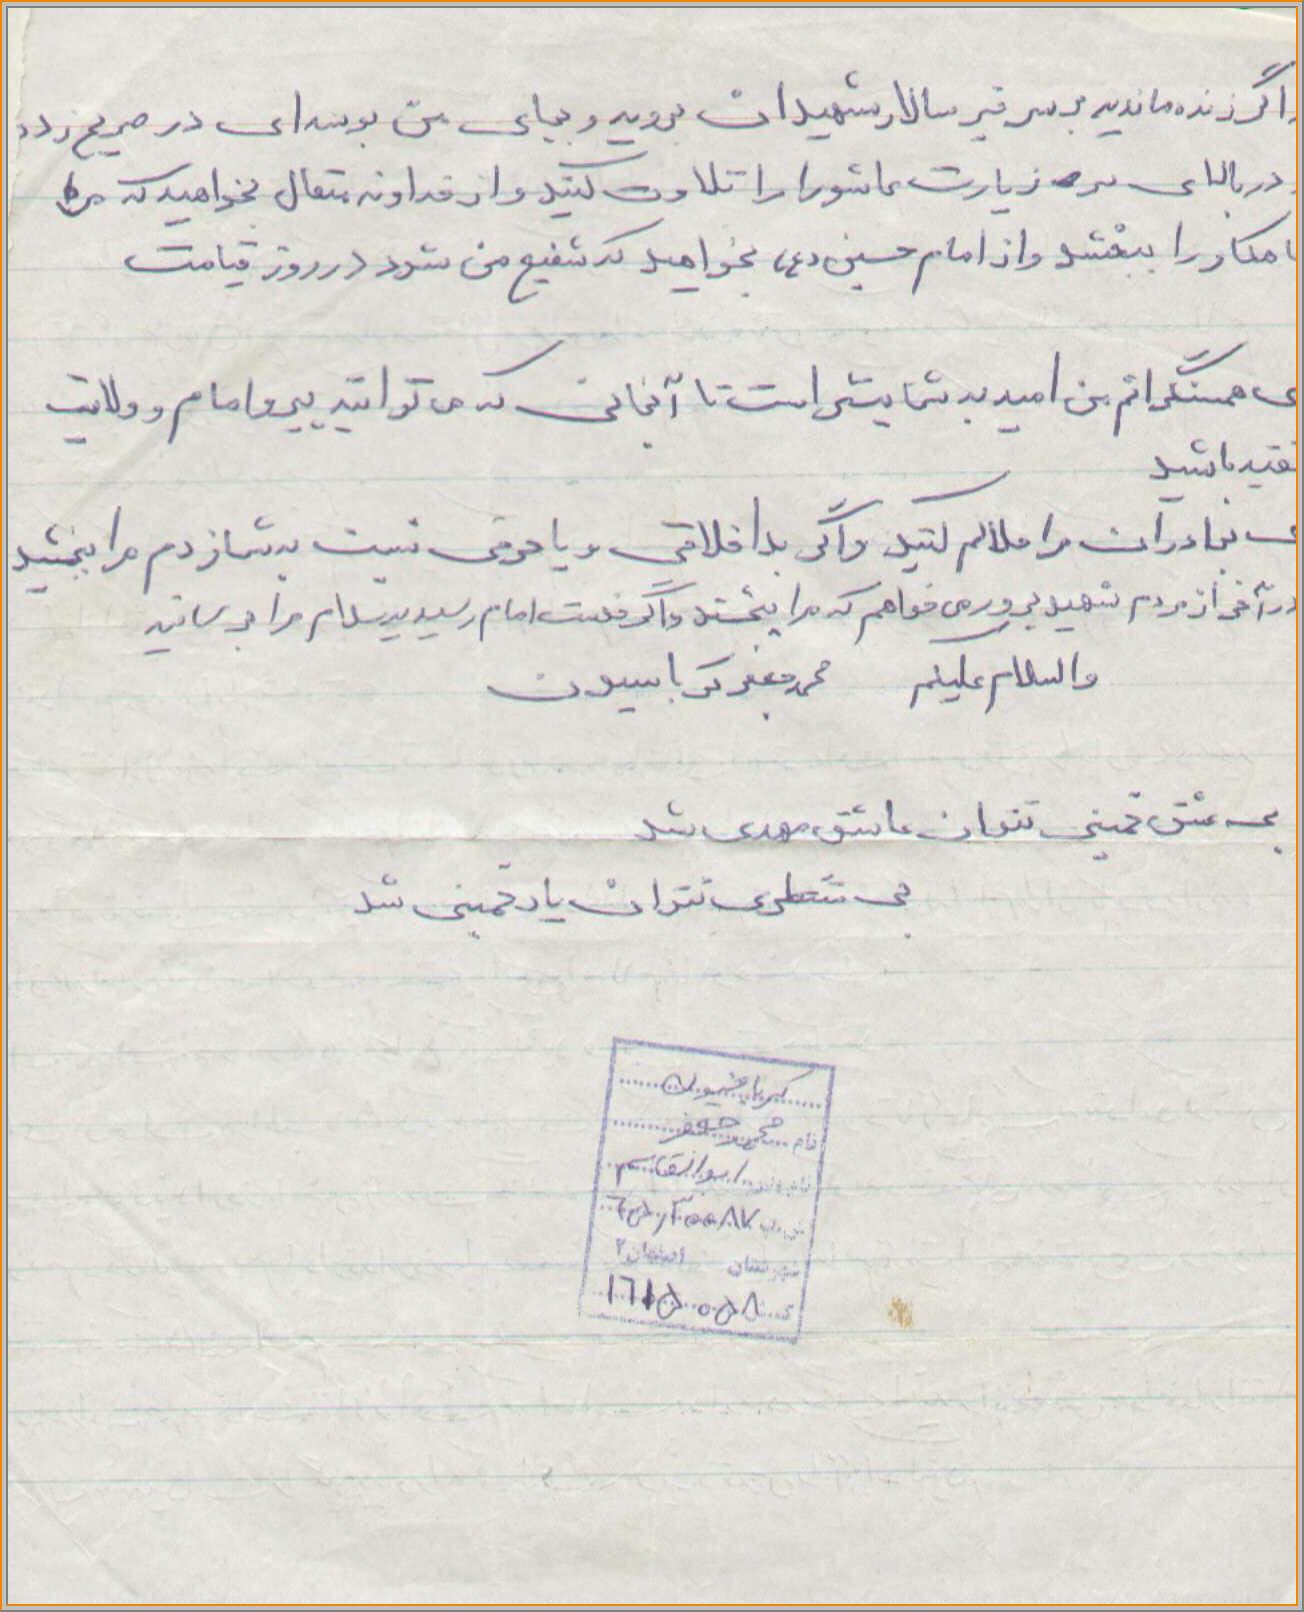 اگر زنده ماندید بر سر قبر سالار شهیدان بروید و بجای من بوسه‌ای در ضریح زده
در بالای سر زیارت عاشورا را تلاوت کنید و از خداوند متعال بخواهید که من
را ببخشد و از امام حسین (ع) بخواهید که شفیع من شود در روز قیامت
ی همسنگرانم من امید به شما بیشتر است تا آنجائی که می توانید پیرو امام و ولایت
فقیه باشید
ی برادران مرا حلالم کنید و اگر بداخلاقی و یا حرفی نسبت به شما زدم مرا ببخشید
در آخر از مردم شهید پرور می خواهم که مرا ببخشند و اگر خدمت امام رسیدید سلام مرا برسانید
والسلام علیکم محمد جعفر کرباسیون
بی عشق خمینی نتوان عاشق مهدی شد
بی منتظری نتوان یار خمینی شد
کرباسیون
نام محمد جعفر
نام پدر ابوالقاسم
٦٥٫٣٠٠٨٧
شهرستان اصفهان ۲
١٦١٥٠٥٨